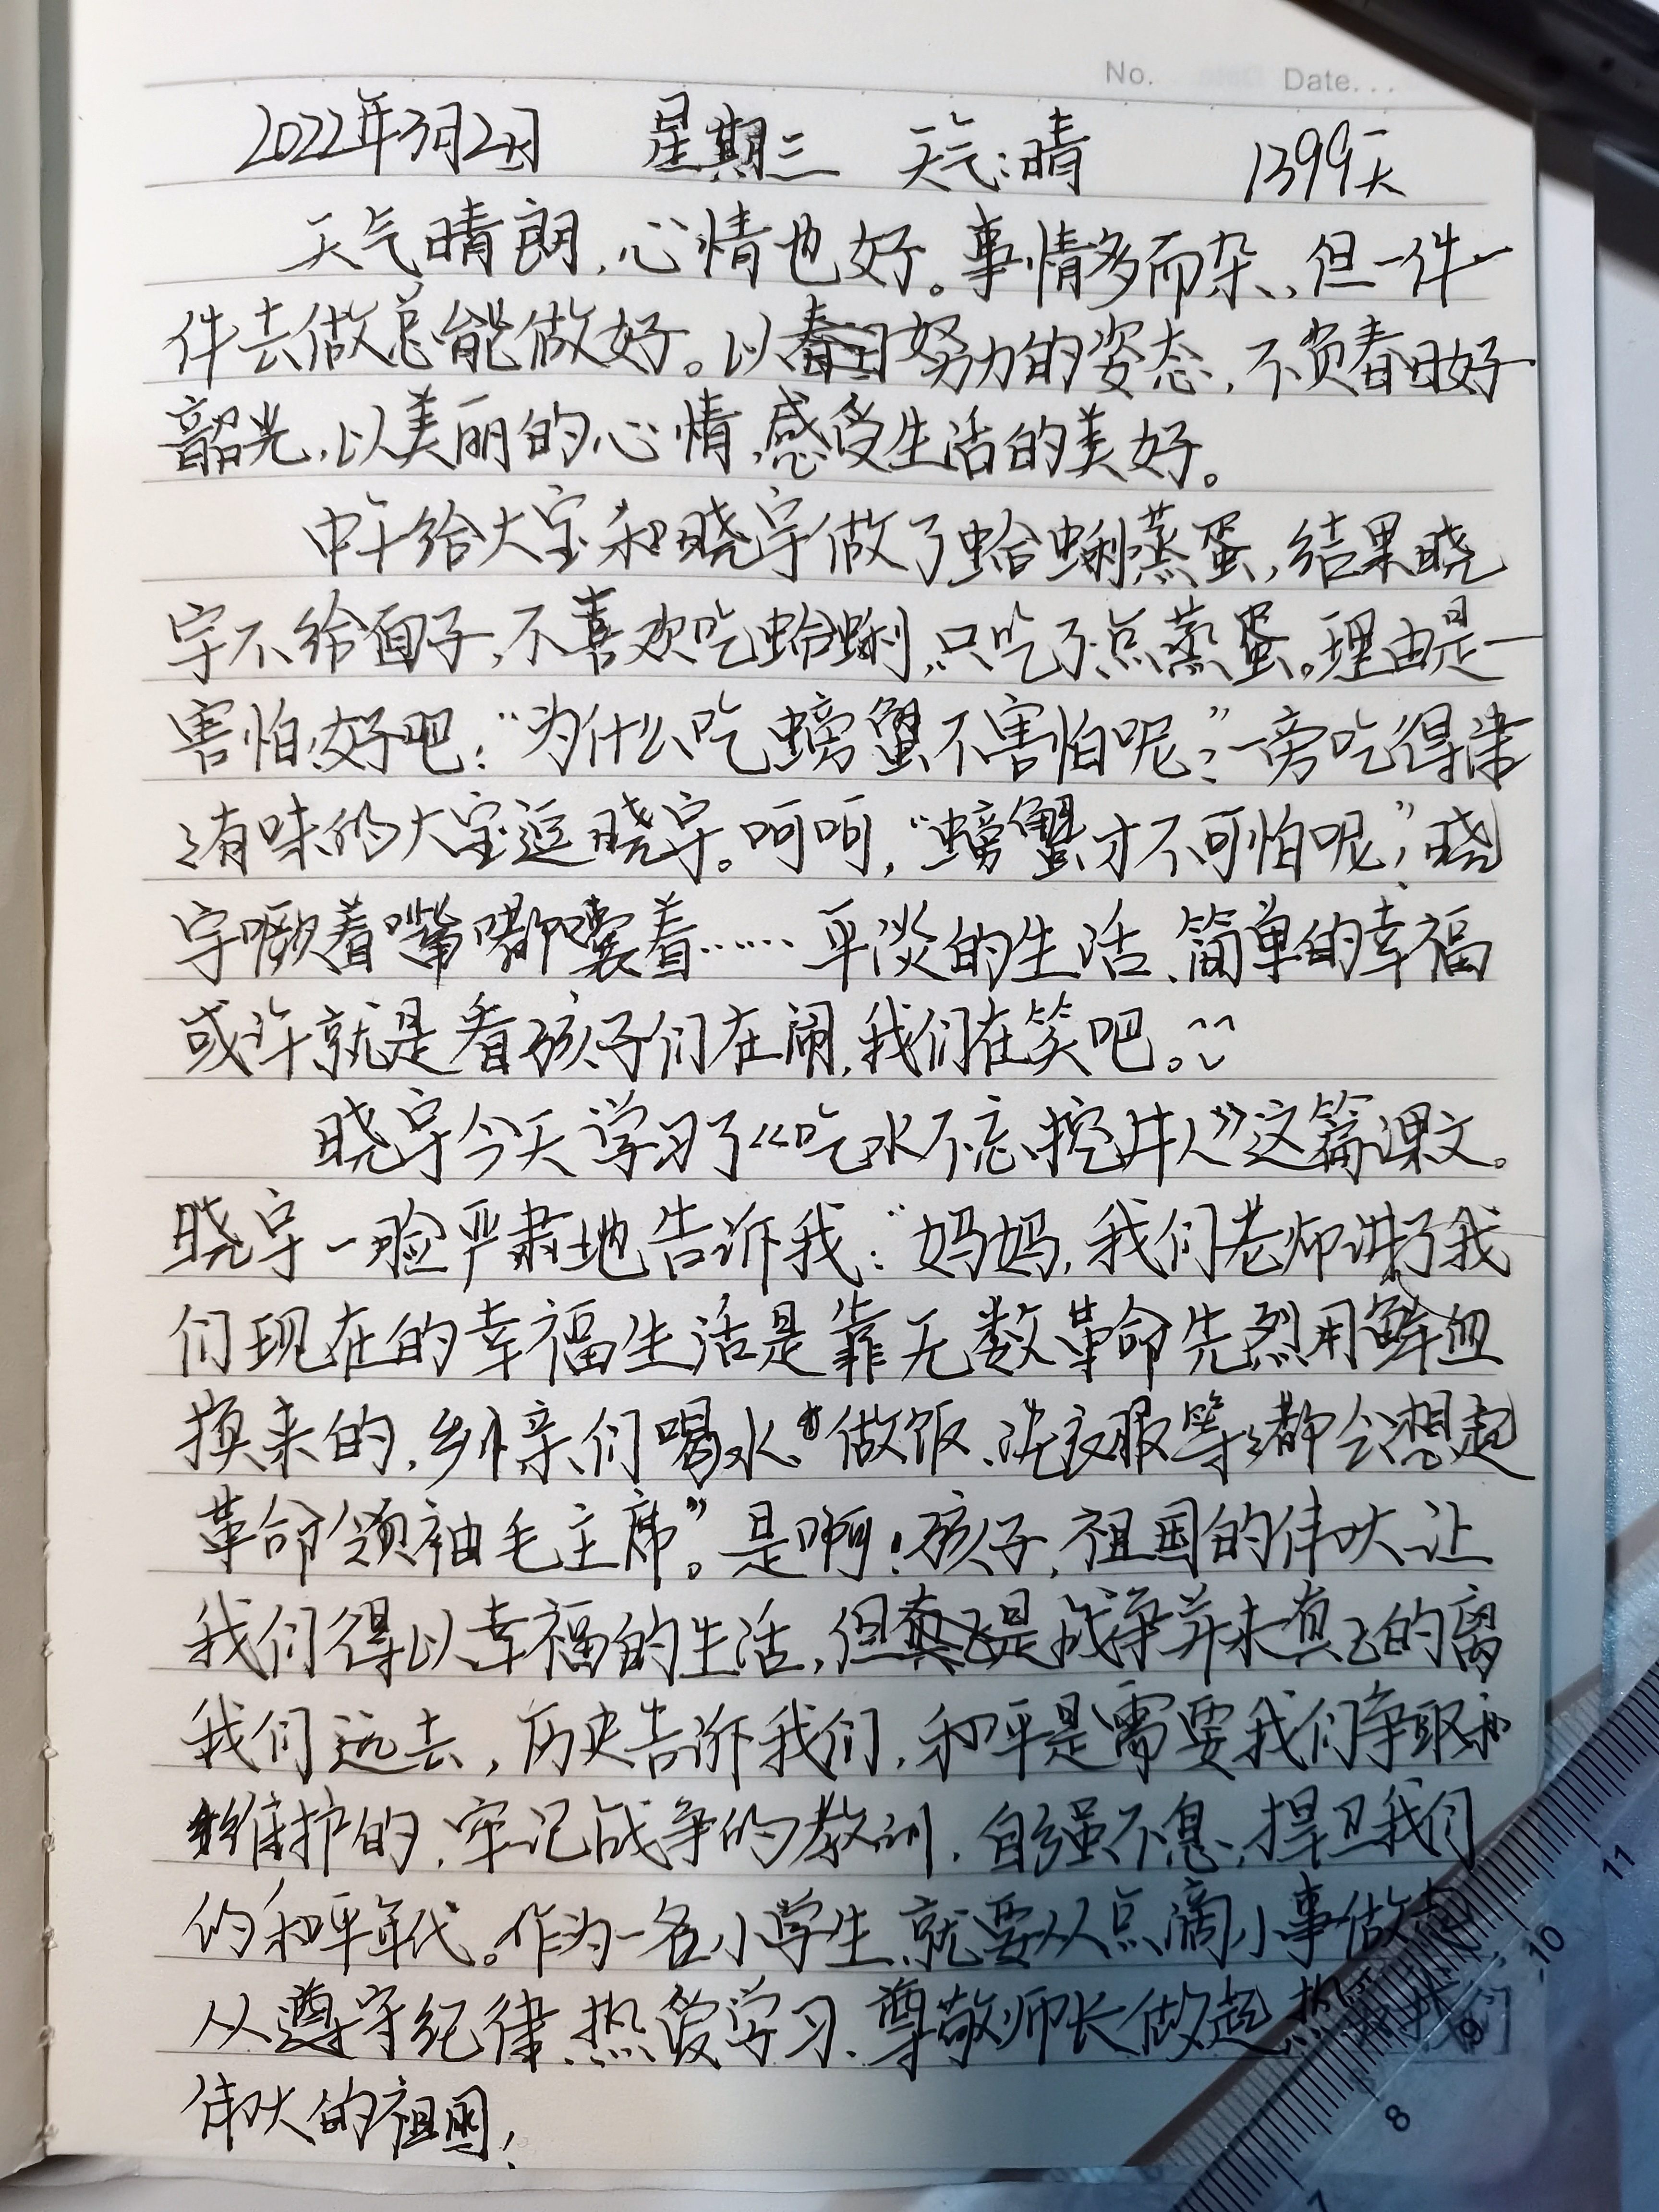 No. Date...
2022年3月2日 星期三 天气:晴 1399天
天气晴朗,心情也好。事情多而杂,但一件一
件去做总能做好。以努力的姿态,不负春日好
韶光,以美丽的心情,感受生活的美好。
中午给大宝和晓宇做了蛤蜊蒸蛋,结果晓
宇不给面子,不喜欢吃蛤蜊,只吃了点蒸蛋。理由是—
害怕,好吧:“为什么吃螃蟹不害怕呢?”一旁吃得津
津有味的大宝逗晓宇。呵呵,“螃蟹才不可怕呢”,晓
宇噘着嘴嘟囔着……平淡的生活、简单的幸福
或许就是看孩子们在闹,我们在笑吧。
晓宇今天学习了《吃水不忘挖井人》这篇课文。
晓宇一脸严肃地告诉我:“妈妈,我们老师讲了我
们现在的幸福生活是靠无数革命先烈用鲜血
换来的,乡亲们喝水、做饭、洗衣服等等都会想起
革命领袖毛主席”。是啊!孩子,祖国的伟大让
我们得以幸福的生活,但是战争并未真正的离
我们远去,历史告诉我们,和平是需要我们争取和
维护的,牢记战争的教训,自强不息,捍卫我们
的和平年代。作为一名小学生,就要从点滴小事做起
从遵守纪律、热爱学习、尊敬师长做起,热爱我们
伟大的祖国!
11
10
9
8
7